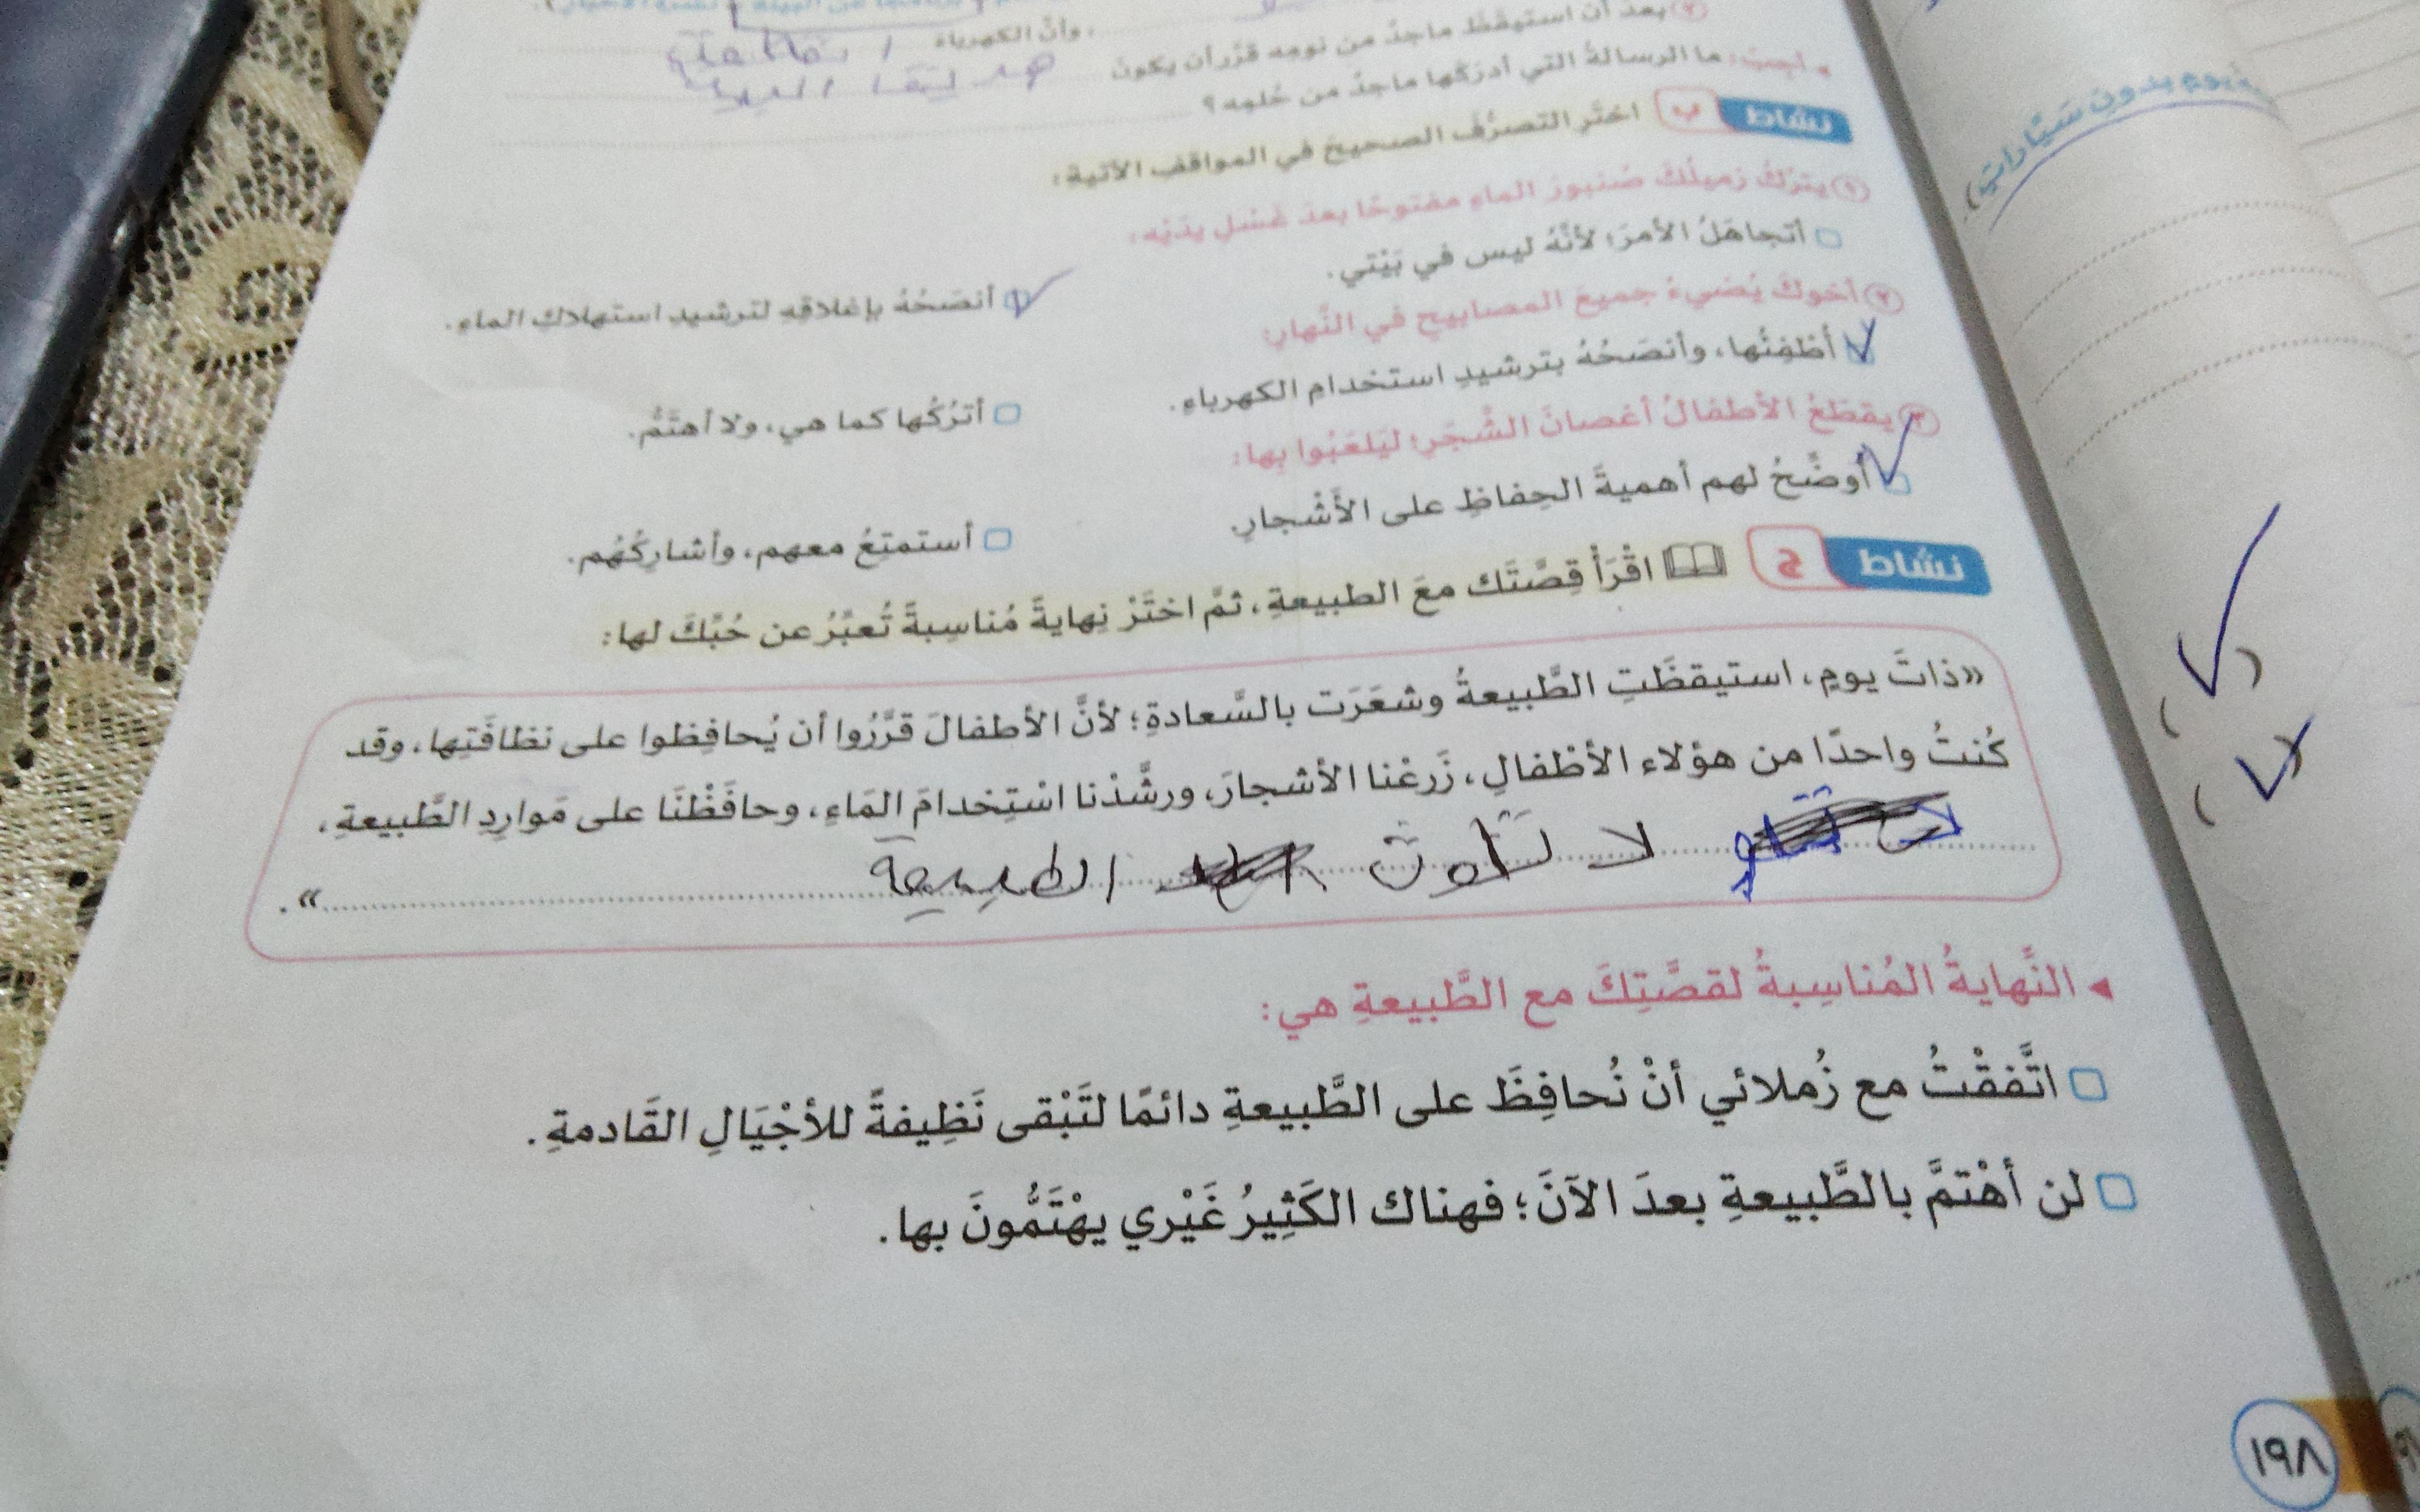 ٢ بعد أن استيقظ ماجدٌ من نومه قرَّر أن يكون
، وأنَّ الكهرباء
◂ أجب: ما الرسالةُ التي أدركها ماجدٌ من حُلمِه؟
نشاط ب اختَرِ التصرُّفَ الصحيحَ في المواقفِ الآتيةِ:
١ يتركُ زميلُكَ صُنبورَ الماءِ مفتوحًا بعدَ غَسْلِ يدَيْه:
أتجاهَلُ الأمرَ؛ لأنَّهُ ليس في بَيْتي.
أنصَحُهُ بإغلاقِهِ لترشيدِ استهلاكِ الماءِ.
٢ أخوكَ يُضيءُ جميعَ المصابيحِ في النَّهارِ:
أطْفِئُها، وأنصَحُهُ بترشيدِ استخدامِ الكهرباءِ.
أتْرُكُها كما هي، ولا أهتَمُّ.
٣ يقطَعُ الأطفالُ أغصانَ الشَّجَرِ؛ ليَلعَبُوا بها:
أوضِّحُ لهم أهميةَ الحِفاظِ على الأَشْجارِ.
أستمتِعُ معهم، وأشارِكُهُم.
نشاط ج اقْرَأْ قِصَّتَك معَ الطبيعةِ، ثمَّ اختَرْ نِهايةً مُناسِبةً تُعبِّرُ عن حُبِّكَ لها:
«ذاتَ يومٍ، استيقظَتِ الطَّبيعةُ وشعَرَت بالسَّعادةِ؛ لأنَّ الأطفالَ قرَّرُوا أن يُحافِظوا على نظافَتِها، وقد
كُنتُ واحدًا من هؤلاء الأطْفالِ، زَرعْنا الأشجارَ، ورشَّدْنا اسْتِخدامَ المَاءِ، وحافَظْنَا على مَوارِدِ الطَّبيعةِ،
لا الطبيعة
».
◂ النِّهايةُ المُناسِبةُ لقصَّتِكَ مع الطَّبيعةِ هي:
اتَّفقْتُ مع زُملائي أنْ نُحافِظَ على الطَّبيعةِ دائمًا لتَبْقى نَظِيفةً للأجْيَالِ القَادمةِ.
لن أهْتمَّ بالطَّبيعةِ بعدَ الآنَ؛ فهناك الكَثِيرُ غَيْري يهْتَمُّونَ بها.
يوم بدون سَيَّاراتٍ)
١٩٨